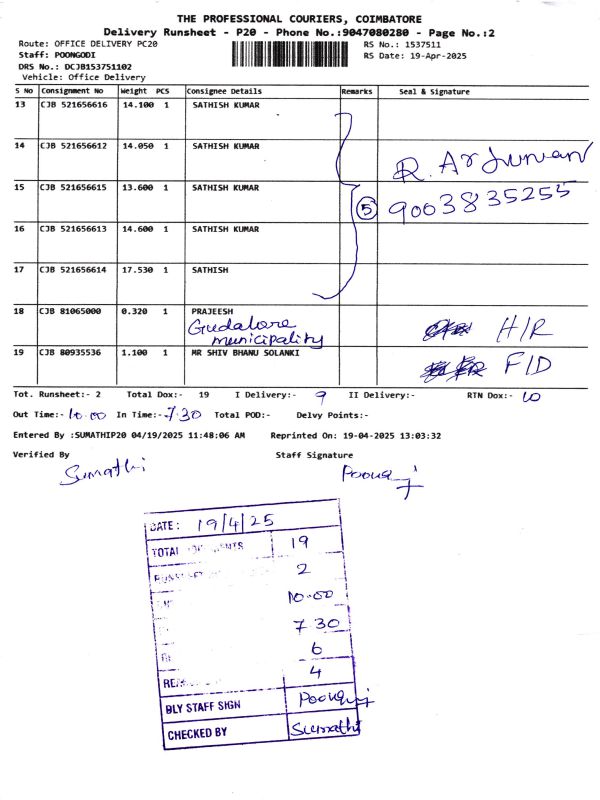 THE PROFESSIONAL COURIERS, COIMBATORE
Delivery Runsheet - P20 - Phone No.:9047080280 - Page No.:2
Route: OFFICE DELIVERY PC20 RS No.: 1537511
Staff: POONGODI RS Date: 19-Apr-2025
DRS No.: DCJB153751102
Vehicle: Office Delivery
S No Consignment No Weight PCS Consignee Details Remarks Seal & Signature
13 CJB 521656616 14.100 1 SATHISH KUMAR
14 CJB 521656612 14.050 1 SATHISH KUMAR
R. Arjunan
15 CJB 521656615 13.600 1 SATHISH KUMAR
5 9003835255
16 CJB 521656613 14.600 1 SATHISH KUMAR
17 CJB 521656614 17.530 1 SATHISH
18 CJB 81065000 0.320 1 PRAJEESH
Gudalore
municipality
H/R
19 CJB 80935536 1.100 1 MR SHIV BHANU SOLANKI
F/D
Tot. Runsheet:- 2 Total Dox:- 19 I Delivery:- 9 II Delivery:- RTN Dox:- 10
Out Time:- 10.00 In Time:- 7.30 Total POD:- Delvy Points:-
Entered By :SUMATHIP20 04/19/2025 11:48:06 AM Reprinted On: 19-04-2025 13:03:32
Verified By Staff Signature
Sumathi
DATE: 19/4/25
TOTAL 19
2
10.00
7 30
6
4
DLY STAFF SIGN
CHECKED BY Sumathi